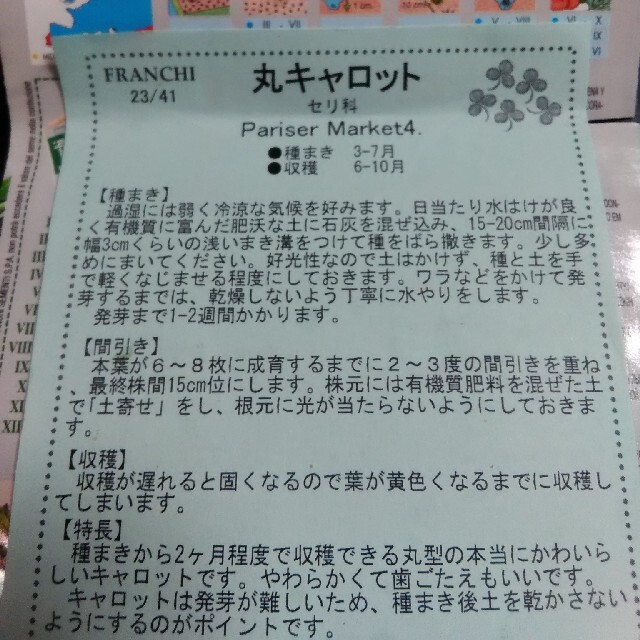 FRANCHI
23/41
丸キャロット
セリ科
Pariser Market4.
●種まき 3-7月
●収穫 6-10月
【種まき】
過湿には弱く冷涼な気候を好みます。日当たり水はけが良
く有機質に富んだ肥沃な土に石灰を混ぜ込み、15-20cm間隔に
幅3cmくらいの浅いまき溝をつけて種をばら撒きます。少し多
めにまいてください。好光性なので土はかけず、種と土を手
で軽くなじませる程度にしておきます。ワラなどをかけて発
芽するまでは、乾燥しないよう丁寧に水やりをします。
発芽まで1-2週間かかります。
【間引き】
本葉が6~8枚に成育するまでに2~3度の間引きを重ね
、最終株間15cm位にします。株元には有機質肥料を混ぜた土
で「土寄せ」をし、根元に光が当たらないようにしておきま
す。
【収穫】
収穫が遅れると固くなるので葉が黄色くなるまでに収穫し
てしまいます。
【特長】
種まきから2ヶ月程度で収穫できる丸型の本当にかわいら
しいキャロットです。やわらかくて歯ごたえもいいです。
キャロットは発芽が難しいため、種まき後土を乾かさない
ようにするのがポイントです。